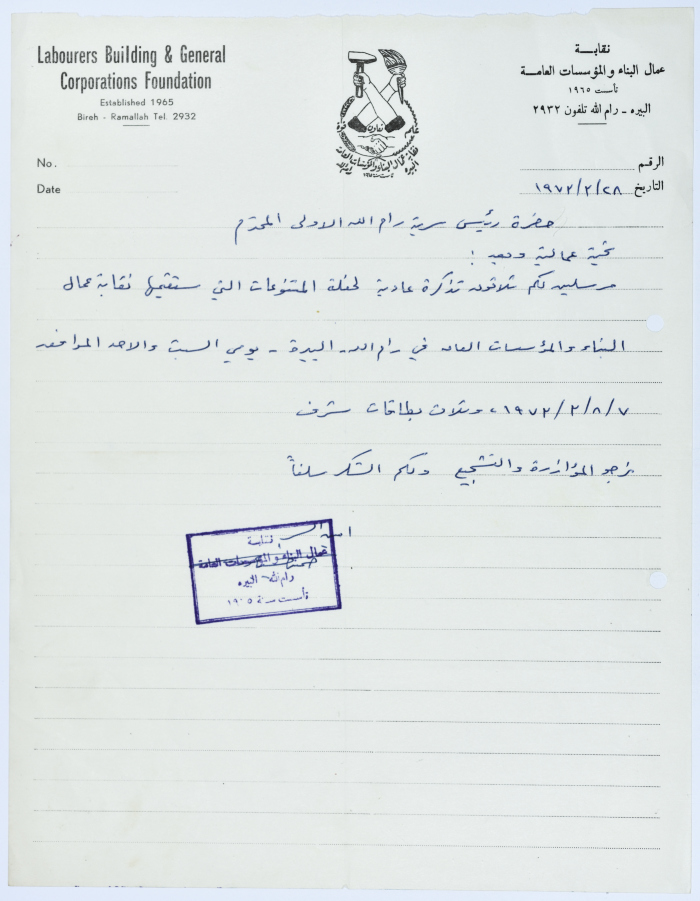 Labourers Building & General
Corporations Foundation
Established 1965
Bireh - Ramallah Tel. 2932
No.
Date
نقابة
عمال البناء والمؤسسات العامة
تأست ١٩٦٥
البيره - رام الله تلفون ٢٩٣٢
تعاون
نقابة عمال البناء والمؤسسات العامة
الرقم
التاريخ ١٩٧٢/٢/٢٨
حضرة رئيس سرية رام الله الاولى المحترم
تحية عمالية وبعد :
مرسلين لكم ثلاثون تذكرة عادية لحفلة المتنوعات التي ستقيمها نقابة عمال
البناء والمؤسسات العامه في رام الله - البيرة - يومي السبت والاحد الموافقه
١٩٧٢/٢/٨/٧ ، وثلاث بطاقات شرف
نرجو المؤازرة والتشجيع ولكم الشكر سلفاً
نقابة
عمال البناء والمؤسسات العامة
رام الله البيره
تأست سنة ١٩٦٥